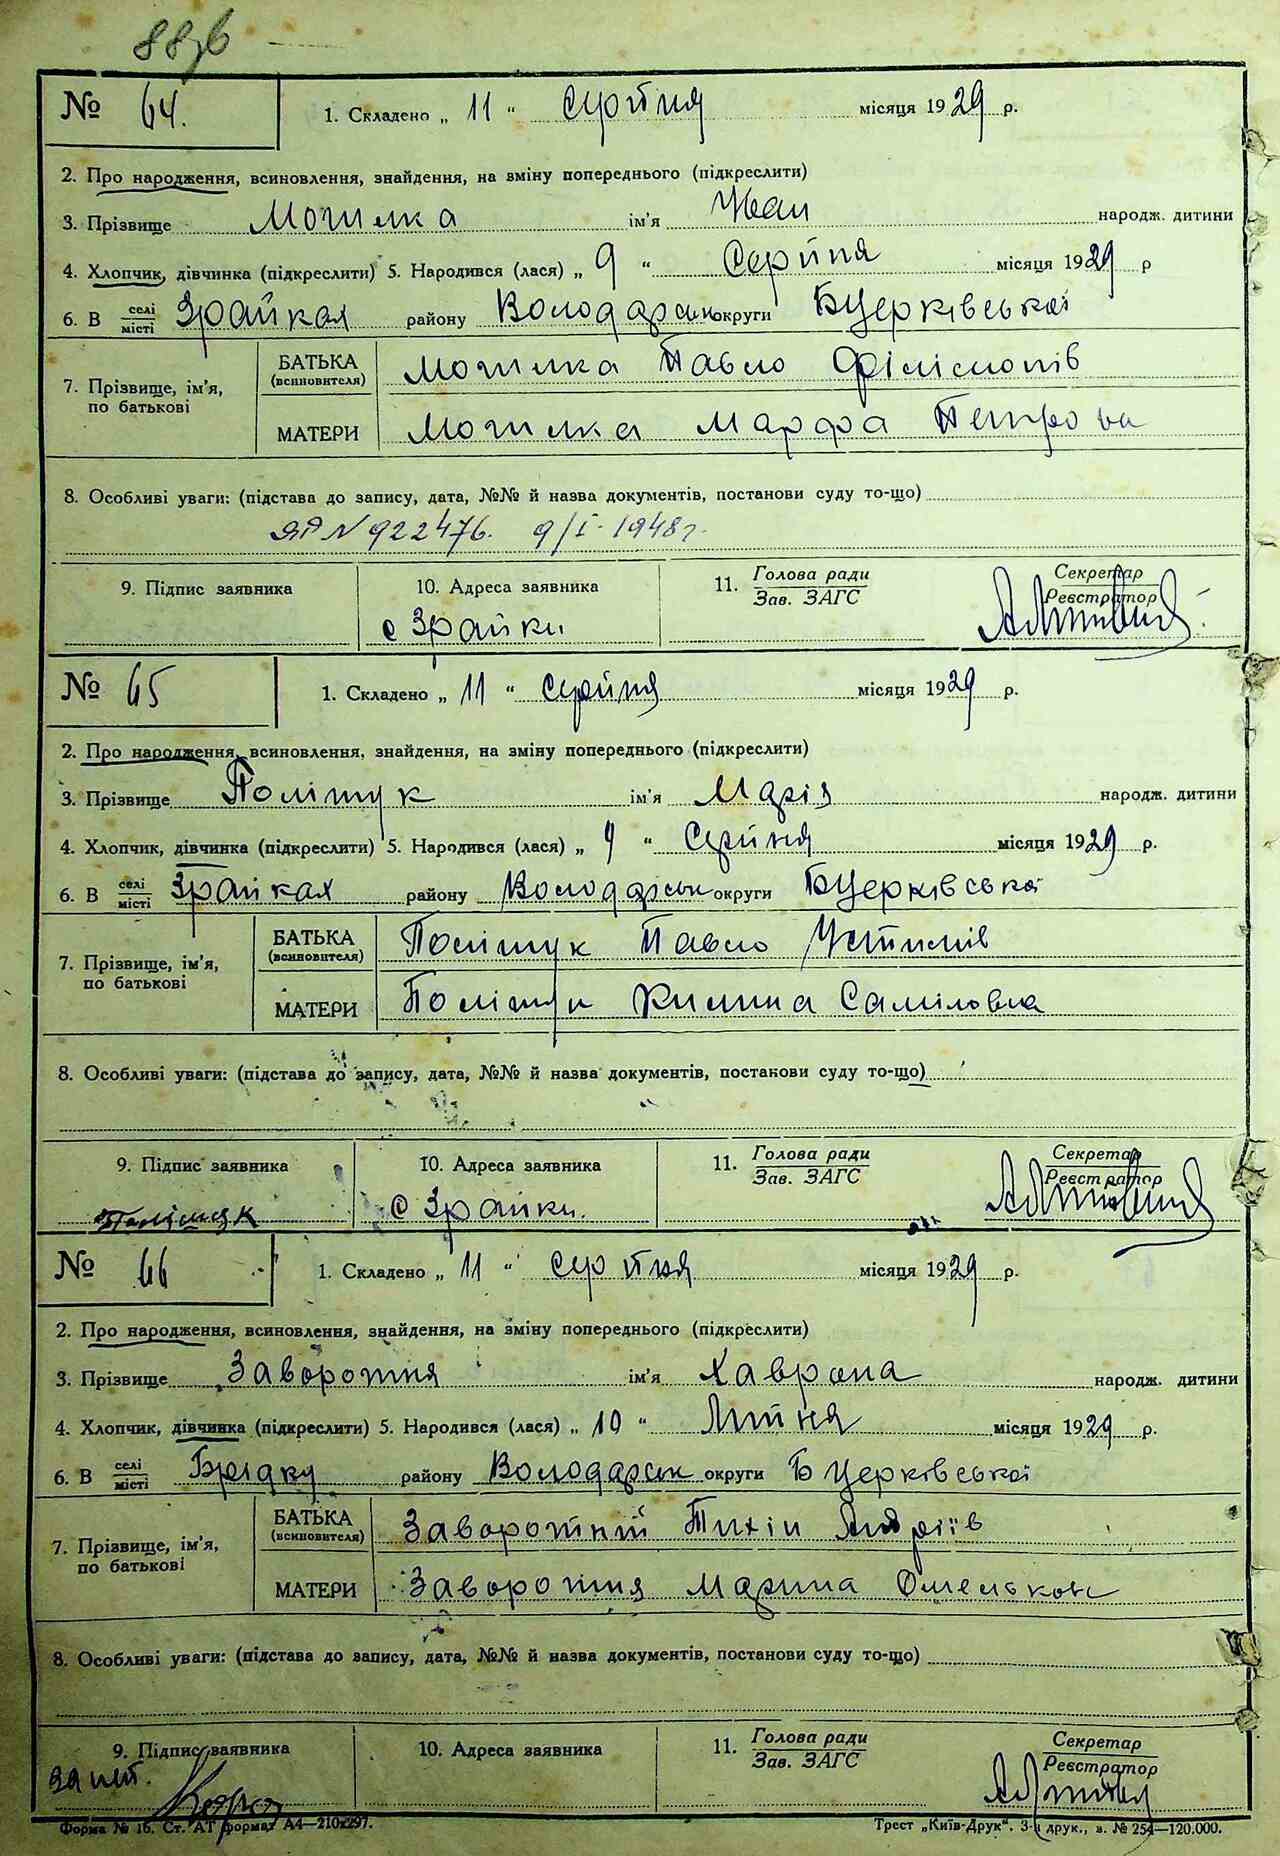 88зв
№ 64. 1. Складено „ 11 “ серпня місяця 1929 р.
2. Про народження, всиновлення, знайдення, на зміну попереднього (підкреслити)
3. Прізвище Могилка ім'я Иван народж. дитини
4. Хлопчик, дівчинка (підкреслити) 5. Народився (лася) „ 9 “ Серпня місяця 1929 р
6. В селі/місті Зрайках району Володарськ округи БЦерківської
БАТЬКА (всиновителя) Могилка Павло Філімонів
7. Прізвище, ім'я, по батькові
МАТЕРИ Могилка Марфа Петрова
8. Особливі уваги: (підстава до запису, дата, №№ й назва документів, постанови суду то-що)
ЯР N 922476. 9/I-1948г.
9. Підпис заявника 10. Адреса заявника 11. Голова ради Зав. ЗАГС Секретар Реєстратор
с Зрайки
№ 65 1. Складено „ 11 “ серпня місяця 1929 р.
2. Про народження, всиновлення, знайдення, на зміну попереднього (підкреслити)
3. Прізвище Поліщук ім'я Марія народж. дитини
4. Хлопчик, дівчинка (підкреслити) 5. Народився (лася) „ 9 “ Серпня місяця 1929 р.
6. В селі/місті Зрайках району Володарськ округи БЦерківської
БАТЬКА (всиновителя) Поліщук Павло Устимів
7. Прізвище, ім'я, по батькові
МАТЕРИ Поліщук Килина Саміловна
8. Особливі уваги: (підстава до запису, дата, №№ й назва документів, постанови суду то-що)
9. Підпис заявника 10. Адреса заявника 11. Голова ради Зав. ЗАГС Секретар Реєстратор
Поліщук с Зрайки.
№ 66 1. Складено „ 11 “ серпня місяця 1929 р.
2. Про народження, всиновлення, знайдення, на зміну попереднього (підкреслити)
3. Прізвище Заворотня ім'я Хаврона народж. дитини
4. Хлопчик, дівчинка (підкреслити) 5. Народився (лася) „ 10 “ Липня місяця 1929 р.
6. В селі/місті району Володарськ округи БЦерківської
БАТЬКА (всиновителя) Заворотній Тихін Андріїв
7. Прізвище, ім'я, по батькові
МАТЕРИ Заворотня Марина Омельков
8. Особливі уваги: (підстава до запису, дата, №№ й назва документів, постанови суду то-що)
9. Підпис заявника 10. Адреса заявника 11. Голова ради Зав. ЗАГС Секретар Реєстратор
Форма № 16. Ст. АТ формат А4—210х297. Трест „Київ-Друк“. 3-я друк., з. № 254—120.000.